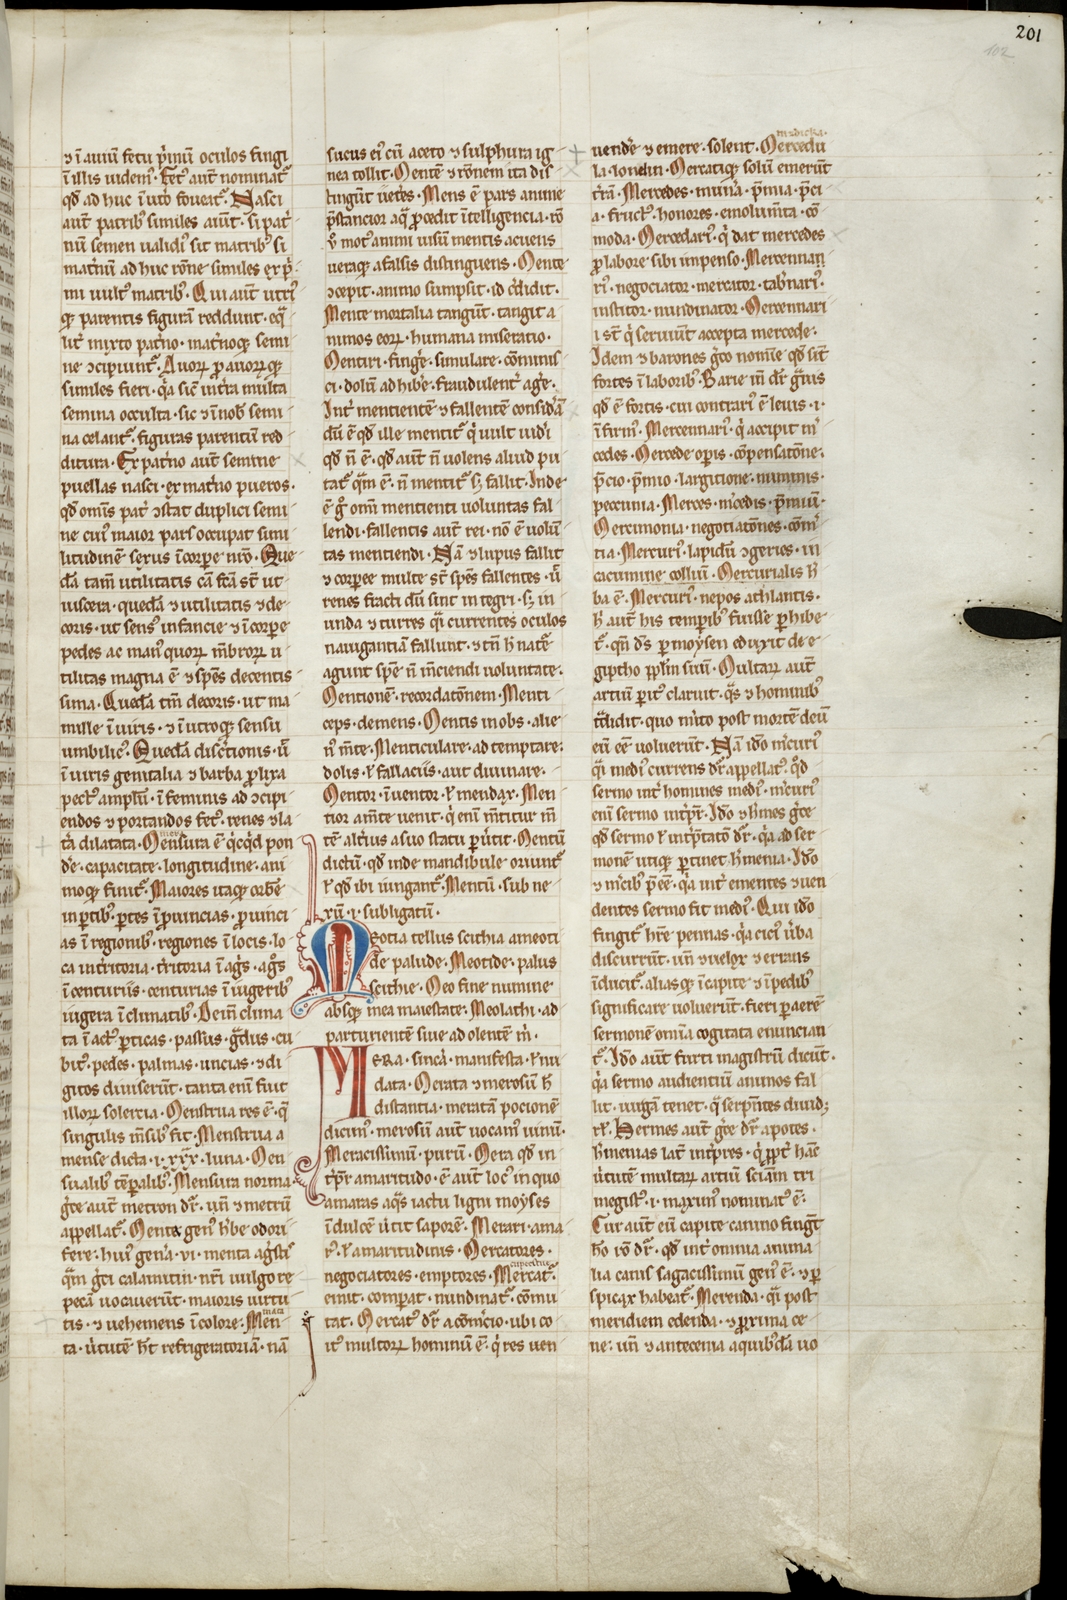 201
102
⁊ ĩ auiũ fetu p̃mũ oculos fingi
ĩ illis uidemꝰ. Fetꝰ aut̃ nominat᷑
qd̃ ad huc ĩ ut̃o foueat᷑. Nasci
aut̃ patribꝰ similes aiũt. si pat̾
nũ semen ualidiꝰ sit matribꝰ si
mat̾nũ ad huc rõne similes ex p̾
mi uultꝰ matribꝰ. Qui aut̃ utriꝰ
qꝫ parentis figurã reddunt. eq̃
lit̾ mixto pat̾no. mat̾noqꝫ semi
ne ↄcipiunt᷑. Auoꝝ ꝓauoꝝqꝫ
similes fieri. q̃a sic̃ in t̾ra multa
semina occulta. sic ⁊ ĩ nob̃ semi
na celant᷑. figuras parentiũ red
ditura. Ex pat̾no aut̃ semine
puellas nasci. ex mat̾no pueros.
qd̃ om̃is part̾ ↄstat duplici semi
ne cuiꝰ maior pars occupat simi
litudinẽ sexus ĩ corpe nr̃o. Que
dã tam̃ utilitatis cã fc̃a st̃ ut
uiscera. quedã ⁊ utilitatis ⁊ de
coris. ut sensꝰ in facie ⁊ ĩ corpe
pedes ac manꝰ quoꝝ m̃broꝝ u
tilitas magna ẽ ⁊ sp̃es decentis
sima. Quedã tm̃ decoris. ut ma
mille ĩ uiris. ⁊ ĩ utroqꝫ sensu
umbilicꝰ. Quedã disc̃tionis. ũ
ĩ uiris genitalia ⁊ barba ꝓlixa
pectꝰ amplũ. ĩ feminis ad ↄcipi
endos ⁊ portandos fetꝰ. renes ⁊ la
t̾a dilatata. Mensura ẽ q̃cq̃d pon
de᷑. capacitate. longitudine. ani
moqꝫ finit᷑. Maiores itaqꝫ orbẽ
in ꝑtibꝰ. ꝑtes ĩ ꝓuincias. ꝓuinci
as ĩ regionibꝰ. regiones ĩ locis. lo
ca in t̾ritoria. t̾ritoria ĩ ag̾s. ag̾s
ĩ centuriis. centurias ĩ iugeribꝰ
iugera ĩ climatibꝰ. Deinde clima
ta ĩ actꝰ ꝑticas. passus. g̃dus. cu
bitꝰ. pedes. palmas. uncias. ⁊ di
gitos diuiserũt. tanta eni᷑ fuit
illoꝝ solercia. Menstrua res ẽ. q̃
singulis m̃sibꝰ fit. Menstrua a
mense dicta. i. xxx. luna. Men
sualibꝰ tẽꝑalibꝰ. Mensura norma
g̾ce aut̃ metron dr̃. uñ ⁊ metrũ
appellat᷑. Menta genꝰ h̾be odori
fere. huiꝰ gen̾a. vi. menta ag̾stiꝰ
q̃m g̾ci calamitin. nr̃i uulgo ne
pecã uocauerũt. maioris uirtu
tis. ⁊ uehemens ĩ colore. Men
ta. ũtutẽ h̃t refrigeratoriã. nã
sucus eiꝰ cũ aceto ⁊ sulphura ig
nea tollit. Mentẽ ⁊ rõnem ita dis
tingũt ũetes. Mens ẽ pars anime
p̃stancior aq̃ ꝓcedit ĩtelligencia. rõ
ũ motꝰ animi uisũ mentis acuens
ueraqꝫ a falsis distinguens. Mente
ↄcepit. animo sumpsit. id c̃didit.
Mente mortalia tangũt. tangit a
nimos eoꝝ. humana miseratio.
Mentiri. fing̾e. simulare. cõminis
ci. dolũ ad hib̾e. fraudulent̾ ag̾e.
Int̾ mentientẽ ⁊ fallentẽ consid̾ã
dũ ẽ qd̃ ille mentit᷑ q̃ uult uid̾i
qd̃ ñ ẽ. qd̃ aut̃ ñ uolens aliud pu
tat᷑ q̃m ẽ. ñ mentit᷑ sꝫ fallit. Inde
ẽ g̾ om̃i mentienti uoluntas fal
lendi. fallentis aut̃ rei. nõ ẽ uolũ
tas mentiendi. Nã ⁊ lupus fallit
⁊ corpee multe st̃ sp̃es fallentes. ũ
renes fracti dũ sint in tegri. sꝫ in
unda ⁊ turres q̃i currentes oculos
nauigantiã fallunt. ⁊ tñ h̾ nat̾e
agunt sp̃e ñ m̃ciendi uoluntate.
Mentionẽ. recordatõnem. Menti
ceps. demens. Mentis inobs. alie
nꝰ m̃te. Menticulare. ad temptare.
dolis. ł fallaciis. aut diuinare.
Mentor. ĩuentor. ł mendax. Men
tior am̃te uenit. q̃ eni᷑ m̃titur m̃
tẽ alt̾ius a suo statu ꝑũtit. Mentũ
dictũ. qd̃ inde mandibule oriunt᷑
ł qd̃ ibi iungant᷑. Mentũ. sub ne
xũ. i. subligatũ.
Meotia tellus scithia a meoti
de palude. Meotide. palus
scithie. Meo sine numine
absqꝫ mea maiestate. Meolathi. ad
parturientẽ siue ad olentẽ m̾.
MERA. sinc̾a. manifesta. ł nu
data. Merata ⁊ merosũ h̾
distantia. meratã pocionẽ
dicimꝰ. merosũ aut̃ uocamꝰ uinũ.
Meracissimũ. purũ. Mera qd̃ in
t̾p̃r amaritudo. ẽ aut̃ locꝰ in quo
amaras aq̃s iactu ligni moyses
ĩ dulcẽ ũtit saporẽ. Merari. ama
rꝰ. ł amaritudinis. Mercatores.
negociatores. emptores. Mercat᷑.
emit. comꝑat. nundinat᷑. cõmu
tat. Mercatꝰ dr̃ a cõm̾cio. ubi co
itꝰ multoꝝ hominũ ẽ. q̃ res uen
medicka.
uend̾e ⁊ emere. solent. Mercedu
la. Mercatiqꝫ solũ emerũt
t̾rã. Mercedes. mun̾a. p̾mia. p̾ci
a. fructꝰ. honores. emolum̃ta. cõ
moda. Mercedariꝰ. q̃ dat mercedes
ꝓ labore sibi impenso. Mercennari
riꝰ. negociator. mercator. tab̾nariꝰ.
institor. nundinator. Mercennari
i st̃ q̃ seruiunt accepta mercede.
Idem ⁊ barones g̾co nomĩe qd̃ sĩt
fortes ĩ laboribꝰ. Barie m̃ dr̃ g̾uis
qd̃ ẽ fortis. cui contrariꝰ ẽ leuis. i.
ĩfirmꝰ. Mercennariꝰ. q̃ accipit m̾
cedes. Mercede oꝑis. cõpensatõne.
p̾cio. p̾mio. largitione. nummis.
peccunia. Merces. m̾cedis. p̃miũ.
Mercimonia. negociatõnes. cõm̾
tia. Mercuriꝰ. lapidũ ↄgeries. in
cacumine colliũ. Mercurialis h̾
ba ẽ. Mercuriꝰ. nepos athlantis.
h̾ aut̃ his tempibꝰ fuisse ꝑhibe
t᷑. qñ ds̃ ꝑ moysen eduxit de e
giptho pp̃lm suũ. Multaꝝ aut̃
artiũ ꝑitꝰ claruit. q̃s ⁊ hominibꝰ
t̾didit. quo m̾ito post mortẽ deũ
eũ eẽ uoluerũt. Nã id̾o m̾curiꝰ
q̃i mediꝰ currens dr̃ appellatꝰ. q̾d
sermo int̾ homines mediꝰ. m̾curiꝰ
eni᷑ sermo int̾p̃r. Id̾o ⁊ h̾mes g̾ce
qd̃ sermo ł int̾p̃tatõ dr̃. q̃a ad ser
monẽ utiqꝫ ꝑtinet h̾menia. Id̾o
⁊ m̾cibꝰ p̃eẽ. q̃a int̾ ementes ⁊ uen
dentes sermo fit mediꝰ. Qui id̾o
fingit᷑ h̃re pennas. q̃a citiꝰ ũba
discurrũt. uñ ⁊ uelox ⁊ errans
ĩducit᷑. aliasqꝫ ĩ capite ⁊ ĩ pedibꝰ
significare uoluerũt. fieri ꝑ aerẽ
sermonẽ om̃ia cogitata enuncian
t᷑. Id̾o aut̃ furti magistrũ dicũt.
q̃a sermo audientiũ animos fal
lit. uirgã tenet. q̃ serp̃ntes diuidꝫ
rł. Hermes aut̃ g̾ce dr̃ apotes.
h̾menias lat̾ int̾p̾res. q̃ ꝓpt̾ hãc
ũtutẽ multaꝝ artiũ sciãm tri
megistꝰ. i. maximꝰ nominatꝰ ẽ.
Cur aut̃ eũ capite canino fingũt
h̾o rõ dr̃. qd̃ int̾ omnia anima
lia canis sagacissimũ genꝰ ẽ. ⁊ ꝑ
spicax habeat᷑. Merenda. q̃i post
meridiem edenda. ⁊ ꝓxima ce
ne. uñ ⁊ antecenia a quibꝰdã uo